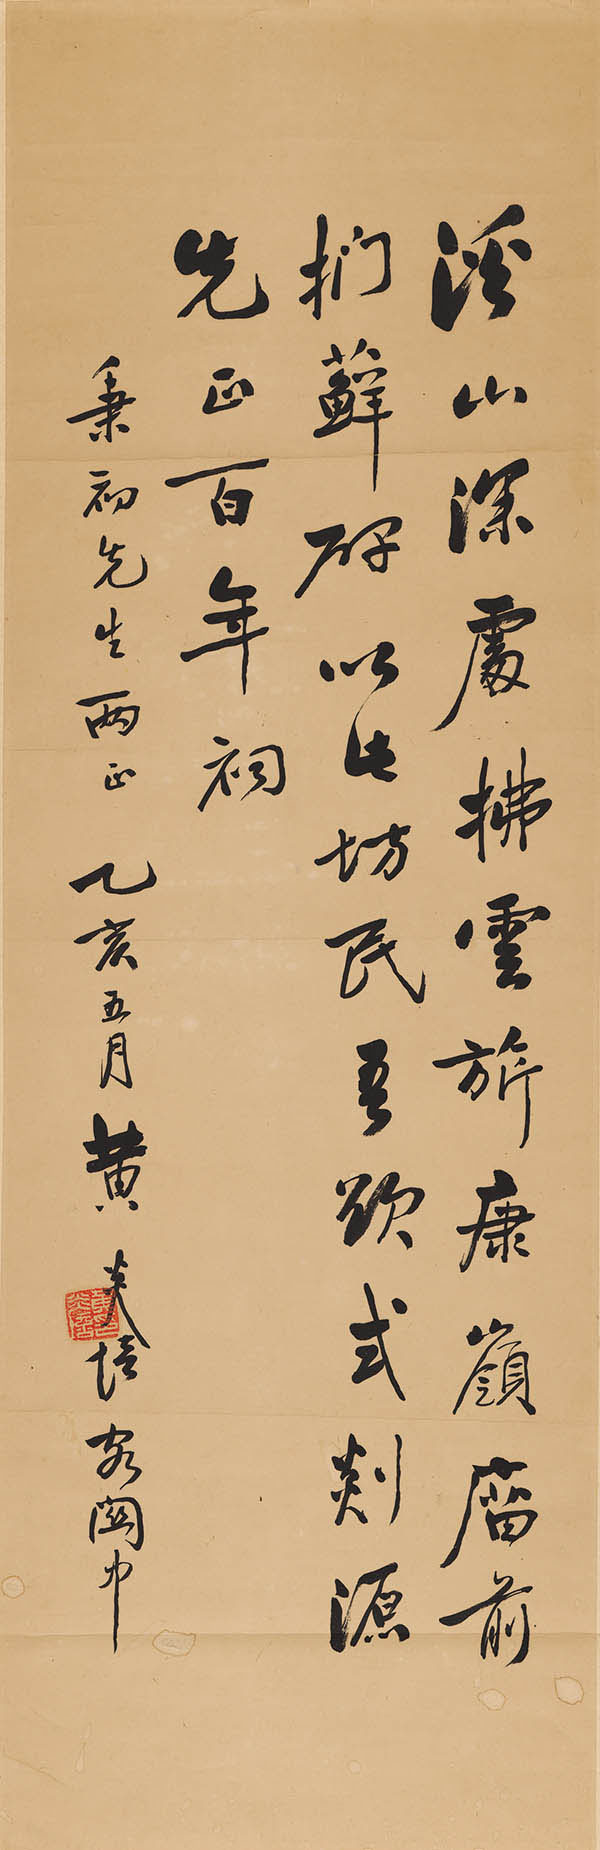 溪山深處拂雲旂康嶺廟前
捫蘚碑以此坊民吾欲式剡源
先正百年祠
秉初先生兩正 乙亥五月黃炎培客閩中